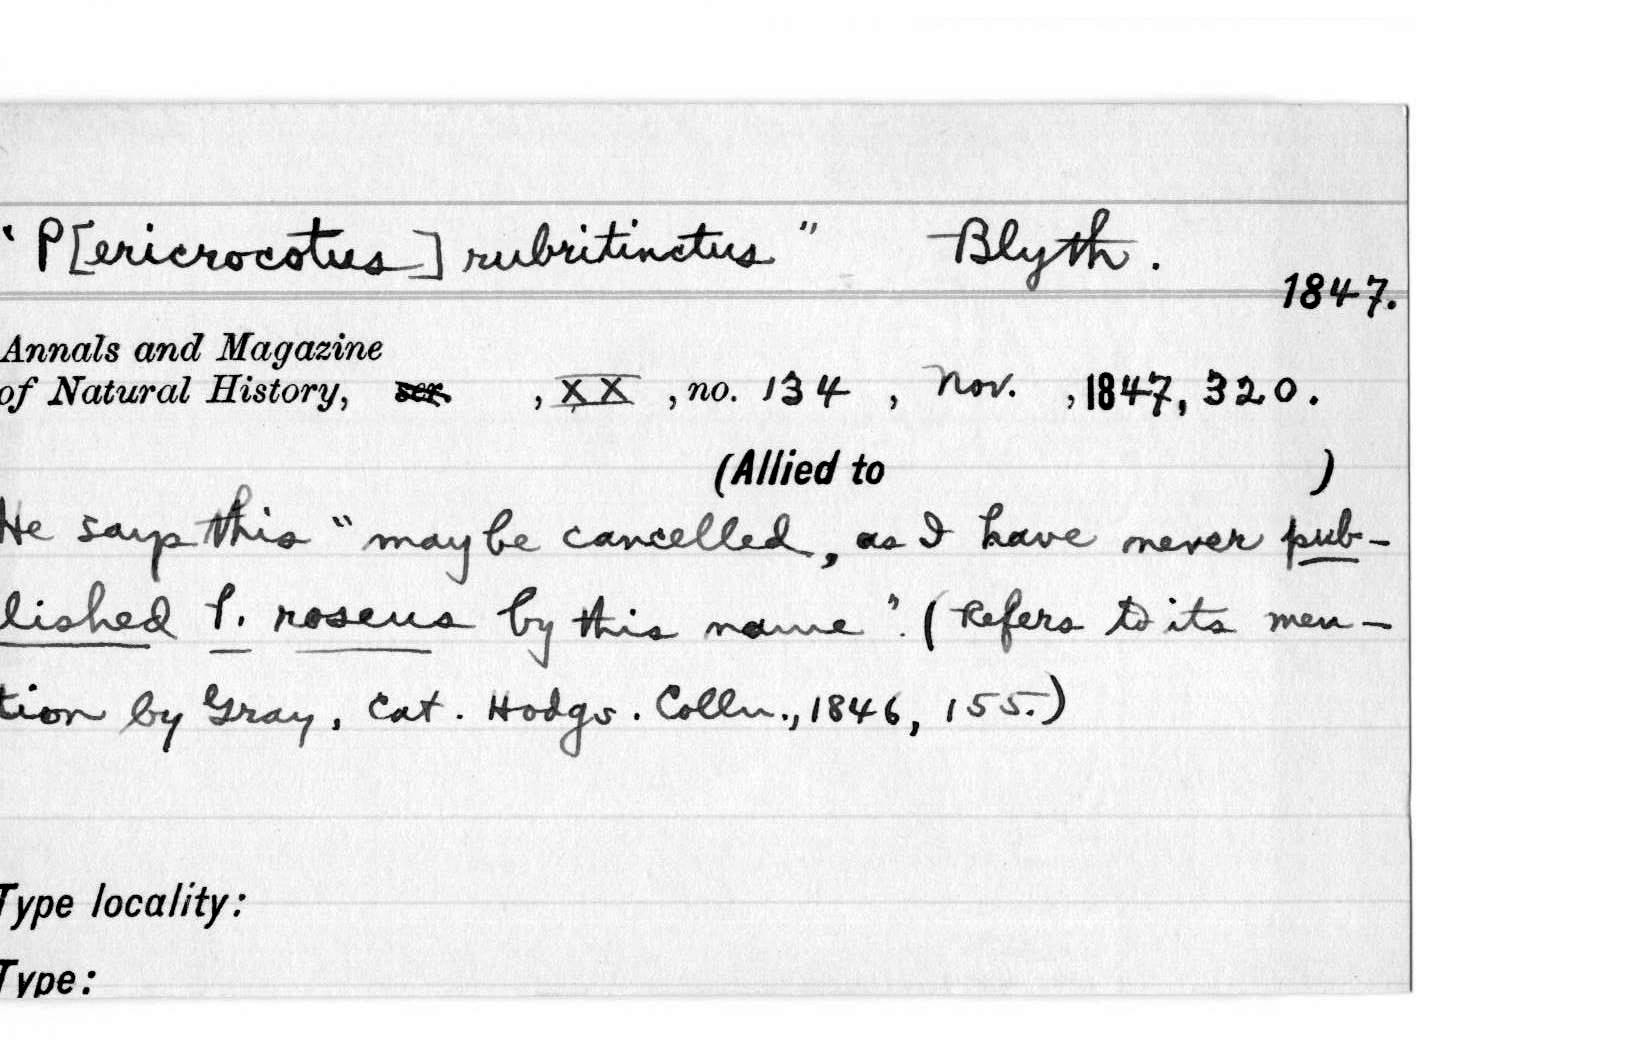 " P[ericrocotus] rubritinctus " Blyth.
1847.
Annals and Magazine
of Natural History, ser. , XX , no. 134 , Nov. , 1847, 320.
(Allied to )
He says this "may be cancelled, as I have never pub-
lished P. roseus by this name". (Refers to its men-
tion by Gray, Cat. Hodgs. Colln., 1846, 155.)
Type locality:
Type: